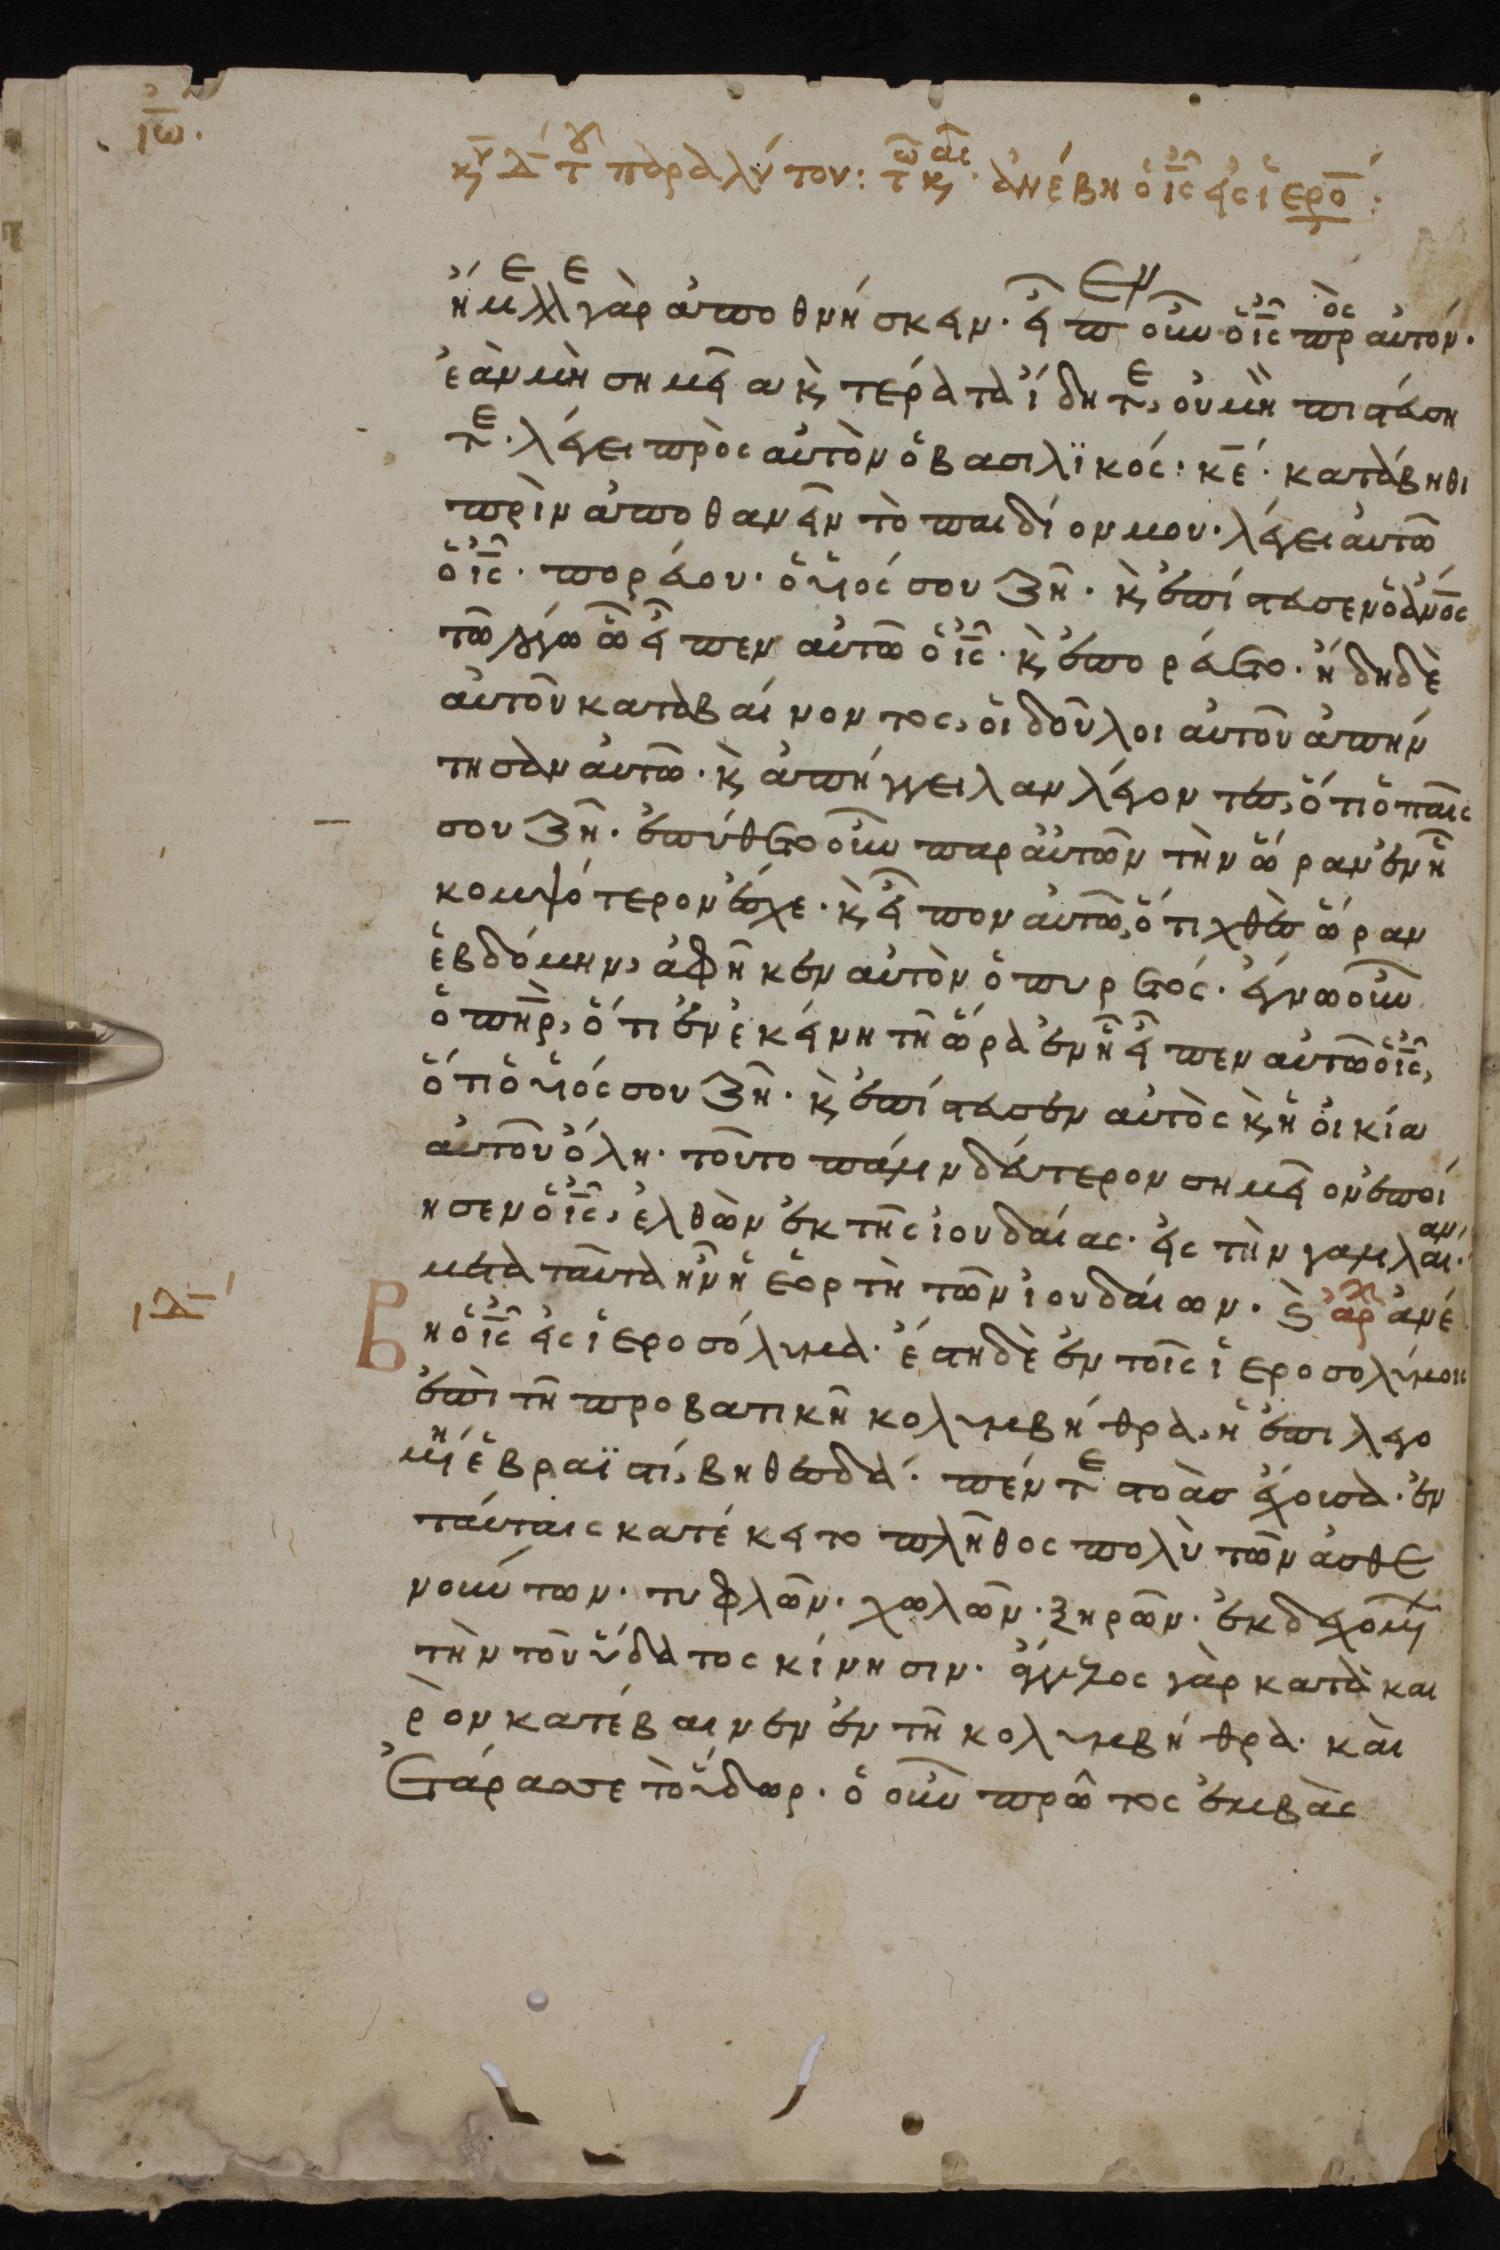 ἰω̅.
κ̅υ δ̅ τοῦ παραλύτου: τῶ κ, αι ἀνέβη ὁ ι̅ς̅ εἰς ἱερο̅:
ἤμελλε γὰρ ἀποθνήσκειν. εἶπεν οὖν ὁ ι̅ς̅ πρὸς αὐτόν.
ἐὰν μὴ σημεῖα κ̀ τέρατα ἴδητε, οὐ μὴ πιστεύση
τε. λέγει πρὸς αὐτὸν ὁ βασιλϊκός: κ̅ε̅. κατάβηθι
πρὶν ἀποθανεῖν τὸ παιδίον μου. λέγει αὐτῶ
ὁ ι̅ς̅. πορεύου. ὁ υἱός σου ζῆ. κ̀ ἐπίστευσεν ὁ ἄν̅ος
τῶ λόγω ὧ εἶπεν αὐτῶ ὁ ι̅ς̅. κ̀ ἐπορεύετο. ἤδη δὲ
αὐτοῦ καταβαίνοντος, οἱ δοῦλοι αὐτοῦ ἀπήν
τησαν αὐτῶ. κ̀ ἀπήγγειλαν λέγοντες, ὅτι ὁ παῖς
σου ζῆ. ἐπύθετο οὖν παρ αὐτῶν τὴν ὥραν ἐν ἧ
κομψότερον ἔσχε. κ̀ εἶπον αὐτῶ, ὅτι χθὲς ὥραν
ἑβδόμην, ἀφῆκεν αὐτὸν ὁ πυρετός. ἔγνω οὖν
ὁ πη̅ρ, ὅτι ἐν ἐκείνη τῆ ὥρα ἐν ἧ εἶπεν αὐτῶ ὁ ι̅ς̅,
ὅτι ὁ υἱός σου ζῆ. κ̀ ἐπίστευσεν αὐτὸς κ̀ ἡ οἰκία
αὐτοῦ ὅλη. τοῦτο πάλιν δεύτερον σημεῖον ἐποί
ησεν ὁ ι̅ς̅, ἐλθὼν ἐκ τῆς ἰουδαίας. εἰς τὴν γαλιλαίαν.
μετὰ ταῦτα ἦν ἡ ἑορτὴ τῶν ἰουδαίων. κ̀ ἀρχ ἀνέ
ιδ̅
β
η ὁ ι̅ς̅ εἰς ἱεροσόλυμα. ἔστι δὲ ἐν τοῖς ἱεροσολύμοις
ἐπὶ τῆ προβατικῆ κολυμβήθρα, ἡ ἐπιλεγο
μένη ἑβραϊστί, βηθεσδά. πέντε στοὰς ἔχουσα. ἐν
ταύταις κατέκειτο πλῆθος πολὺ τῶν ἀσθε
νούντων. τυφλῶν. χωλῶν. ξηρῶν. ἐκδεχομένων
τὴν τοῦ ὕδατος κίνησιν. ἄγγελος γὰρ κατὰ και
ρὸν κατέβαινεν ἐν τῆ κολυμβήθρα. καὶ
ἐτάρασσε τὸ ὕδωρ. ὁ οὖν πρῶτος ἐμβὰς